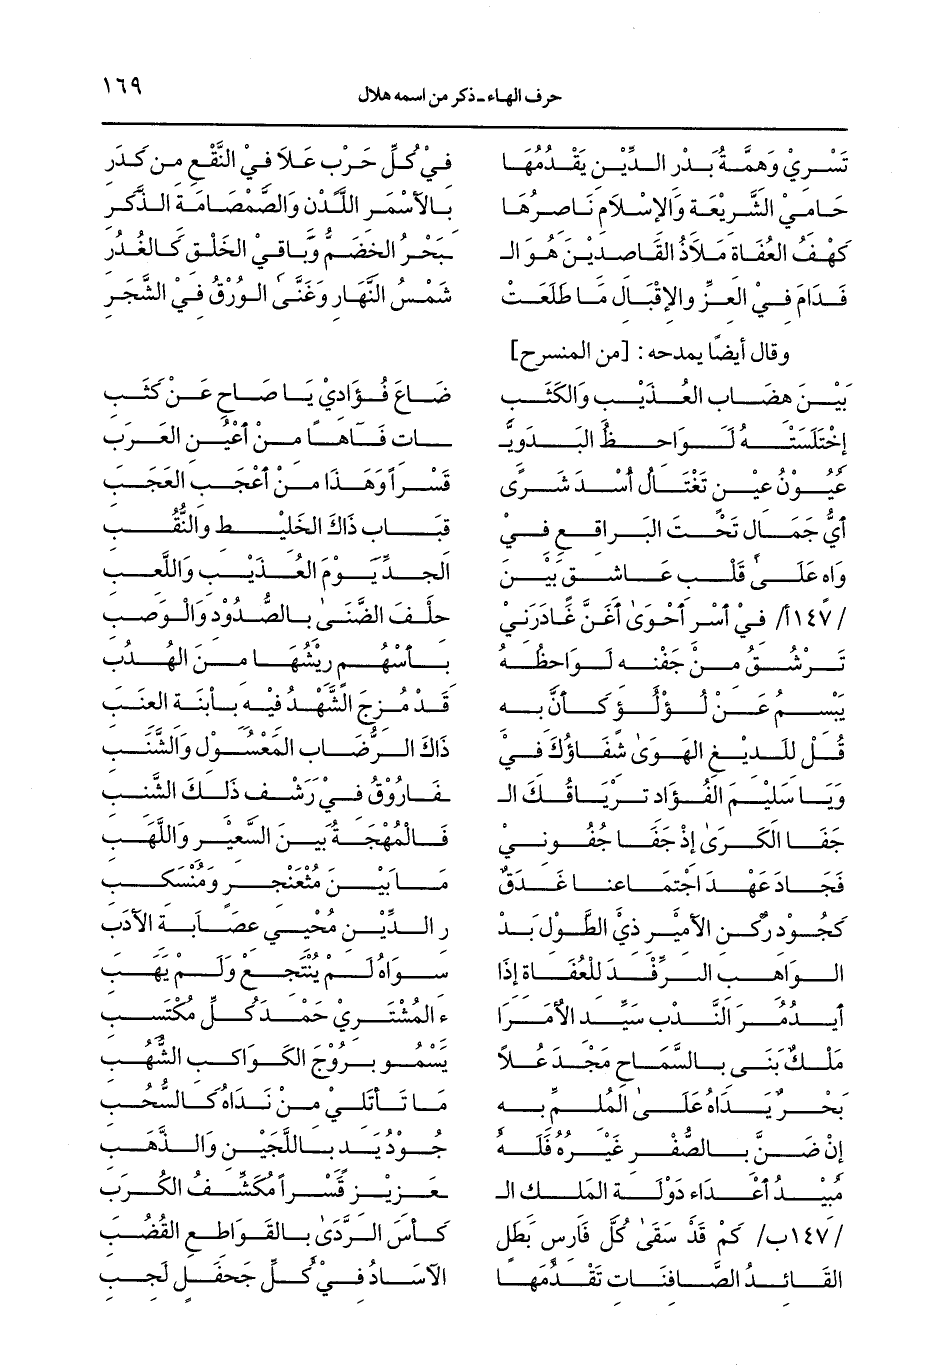 حرف الهاء ـ ذكر من اسمه هلال ١٦٩
تَسْرِيْ وَهِمَّةُ بَدْرِ الدِّيْنِ يَقْدُمُهَا فِيْ كُلِّ حَرْبٍ عَلاَ فِيْ النَّقْعِ مِنْ كَدَرِ
حَامِيْ الشَّرِيْعَةِ وَالإِسْلاَمِ نَاصِرُهَا بِالأَسْمَرِ اللَّدْنِ وَالصَّمْصَامَةِ الذَّكَرِ
كَهْفُ العُفَاةِ مَلاَذُ القَاصِدِيْنَ هُوَ الـ ـبَحْرُ الخِضَمُّ وَبَاقِيْ الخَلْقِ كَالغُدُرِ
فَدَامَ فِيْ العِزِّ والإِقْبَالِ مَا طَلَعَتْ شَمْسُ النَّهَارِ وَغَنَّى الوُرْقُ فِيْ الشَّجَرِ
وقال أيضًا يمدحه: [من المنسرح]
بَيْنَ هِضَابِ العُذَيْبِ وَالكُثُبِ ضَاعَ فُؤَادِيْ يَا صَاحِ عَنْ كَثَبِ
إِخْتَلَسَتْهُ لَوَاحِظُ البَدَوِيَّـ ـاتِ فَآهًا مِنْ أَعْيُنِ العَرَبِ
عُيُوْنُ عِيْنٍ تَغْتَالُ أُسْدَ شَرًى قَسْرًا وَهَذَا مِنْ أَعْجَبِ العَجَبِ
أَيُّ جَمَالٍ تَحْتَ البَرَاقِعِ فِيْ قِبَابِ ذَاكَ الخَلِيْطِ وَالنُّقُبِ
وَاه عَلَى قَلْبِ عَاشِقٍ بَيْنَ الجِدِّ يَوْمَ العُذَيْبِ وَاللَّعِبِ
/١٤٧أ/ فِيْ أَسْرِ أَحْوَى أَغَنَّ غَادَرَنِيْ حِلْفَ الضَّنَى بِالصُّدُوْدِ وَالْوَصَبِ
تَرْشُقُ مِنْ جَفْنِهِ لَوَاحِظُهُ بِأَسْهُمٍ رِيْشُهَا مِنَ الهُدُبِ
يَبْسُمُ عَنْ لُؤْلُؤٍ كَأَنَّ بِهِ قَدْ مُزِجَ الشَّهْدُ فِيْهِ بِابْنَةِ العِنَبِ
قُلْ لِلَدِيْغِ الهَوَى شِفَاؤُكَ فِيْ ذَاكَ الرُّضَابِ المَعْسُوْلِ وَالشَّنَبِ
وَيَا سَلِيْمَ الفُؤَادِ تِرْيَاقُكَ الـ ـفَارُوْقُ فِيْ رَشْفِ ذَلِكَ الشَّنَبِ
جَفَا الكَرَى إِذْ جَفَا جُفُوْنِيْ فَالْمُهْجَةُ بَيْنَ السَّعِيْرِ وَاللَّهَبِ
فَجَادَ عَهْدَ اجْتِمَاعِنَا غَدَقٌ مَا بَيْنَ مُثْعَنْجِرٍ وَمُنْسَكِبِ
كَجُوْدِ رُكْنِ الأَمِيْرِ ذِيْ الطَّوْلِ بَدْ رِ الدِّيْنِ مُحْيِيْ عِصَابَةِ الأَدَبِ
الوَاهِبِ الرِّفْدَ لِلْعُفَاةِ إِذَا سِوَاهُ لَمْ يُنْتَجَعْ وَلَمْ يَهَبِ
أَيْدُمُرَ النَّدْبِ سَيِّدِ الأُمَرَا ءِ المُشْتَرِيْ حَمْدَ كُلِّ مُكْتَسِبِ
مَلْكٌ بَنَى بِالسَّمَاحِ مَجْدَ عُلاً يَسْمُو بِرُوْجَ الكَوَاكِبِ الشُّهُبِ
بَحْرٌ يَدَاهُ عَلَى المُلِمِّ بِهِ مَا تَأْتَلِيْ مِنْ نَدَاهُ كَالسُّحُبِ
إِنْ ضَنَّ بِالصُّفْرِ غَيْرُهُ فَلَهُ جُوْدُ يَدٍ بِاللُّجَيْنِ وَالذَّهَبِ
مُبِيْدُ أَعْدَاءِ دَوْلَةِ المَلِكِ الـ ـعَزِيْزِ قَسْرًا مُكَشِّفُ الكُرَبِ
/١٤٧ب/ كَمْ قَدْ سَقَى كُلَّ فَارِسٍ بَطَلٍ كَأْسَ الرَّدَى بِالقَوَاطِعِ القُضُبِ
القَائِدُ الصَّافِنَاتِ تَقْدُمُهَا الآسَادُ فِيْ كُلِّ جَحْفَلٍ لَجِبِ